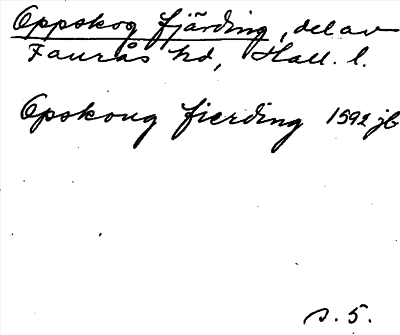 Oppskog fjärding, del av
Faurås hd, Hall. l.
Opskoug fierding 1592 jb
s. 5.